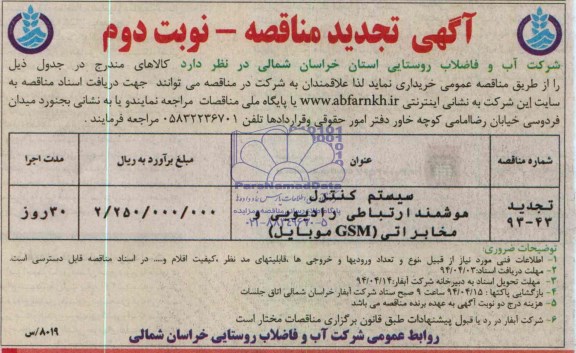 آگهی تجدید مناقصه – نوبت دوم
شرکت آب و فاضلاب روستایی استان خراسان شمالی در نظر دارد کالاهای مندرج در جدول ذیل
را از طریق مناقصه عمومی خریداری نماید لذا علاقمندان به شرکت در مناقصه می توانند جهت دریافت اسناد مناقصه به
سایت این شرکت به نشانی اینترنتی www.abfarnkh.ir یا پایگاه ملی مناقصات مراجعه نمایندو یا به نشانی بجنورد میدان
فردوسی خیابان رضاامامی کوچه خاور دفتر امور حقوقی وقراردادها تلفن ۰۵۸۳۲۲۳۶۷۰۱ مراجعه فرمایند .
شماره مناقصه عنوان مبلغ برآورد به ریال مدت اجرا
تجدید ۴۳-۹۳ سیستم کنترل هوشمند ارتباطی رادیویی و مخابراتی (GSM موبایل) ۲/۲۵۰/۰۰۰/۰۰۰ ۳۰ روز
ParsNamadData
۰۲۱-۸۸۳۴۹۶۷۰-۵
توضیحات ضروری:
۱- اطلاعات فنی مورد نیاز از قبیل نوع و تعداد ورودیها و خروجی ها ،قابلیتهای مد نظر ،کیفیت اقلام و.... در اسناد مناقصه قابل دسترسی است.
۲- مهلت دریافت اسناد:۹۴/۰۴/۰۳
۳- مهلت تحویل اسناد به دبیرخانه شرکت آبفار:۹۴/۰۴/۱۴
۴- بازگشایی پاکتها : ۹۴/۰۴/۱۵ ساعت ۹ صبح ستاد شرکت آبفار خراسان شمالی اتاق جلسات
۵- هزینه درج دو نوبت آگهی به عهده برنده مناقصه می باشد
۶- شرکت آبفار در رد یا قبول پیشنهادات طبق قانون برگزاری مناقصات مختار است
روابط عمومی شرکت آب و فاضلاب روستایی خراسان شمالی
۸۰۱۹/س